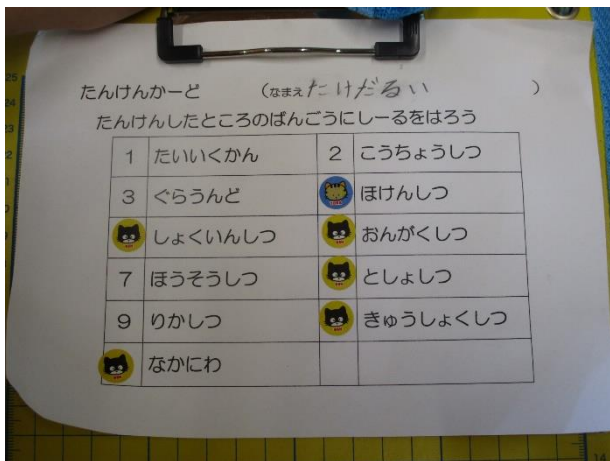 たんけんかーど (なまえ たけだるい )
たんけんしたところのばんごうにしーるをはろう
1 たいいくかん 2 こうちょうしつ
3 ぐらうんど ほけんしつ
しょくいんしつ おんがくしつ
7 ほうそうしつ としょしつ
9 りかしつ きゅうしょくしつ
なかにわ